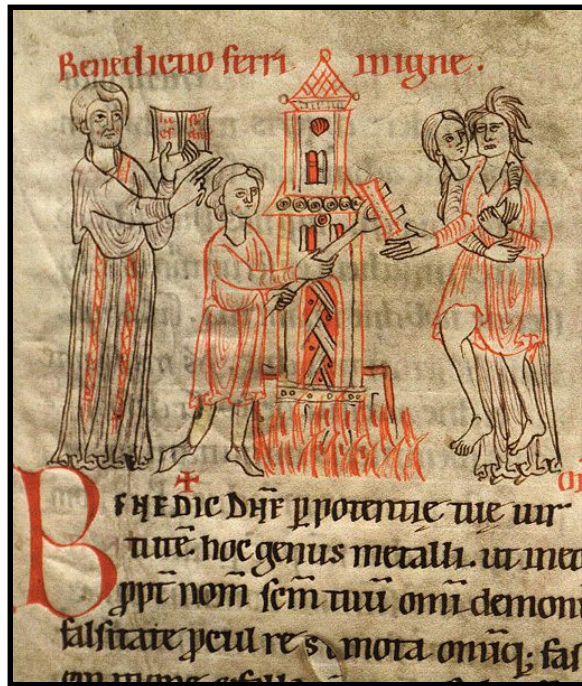 Benedictio ferri in igne.
BENEDIC DN̄E ꝑ potentie tue uir
tutē hoc genus metalli. ut
ꝓpt̄ nom̄ sc̄m tuū om̄i demon
falsitate ꝓcul re mota om̄iq; fas